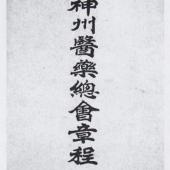 神州醫藥總會章程